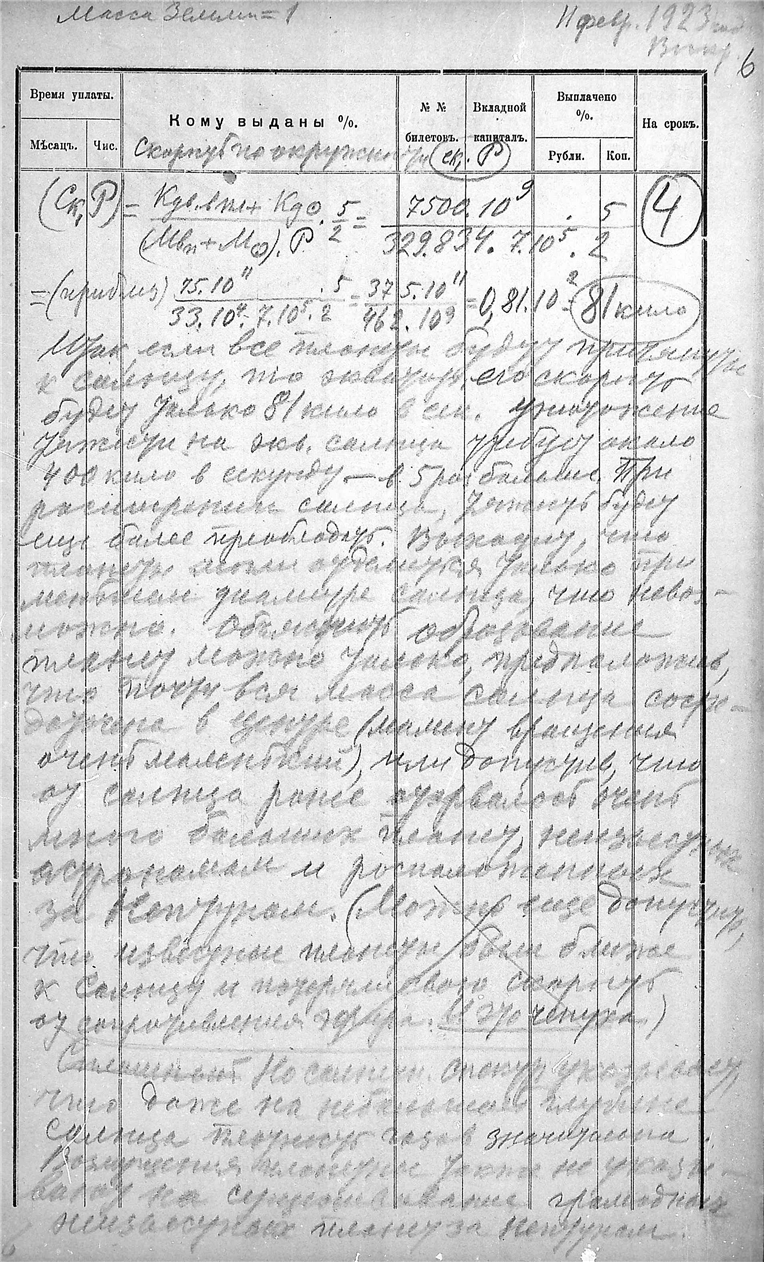 Масса Земли = 1
11 февр. 1923 год
6
Время уплаты.
Мѣсяцъ. Чис.
Кому выданы %.
№ № билетовъ.
Вкладной капиталъ.
Выплачено %.
Рубли. Коп.
На срокъ.
Скорость по окружности (Ск, Р)
(Ск, Р) = Кдв.впл + Кд☉ / (Мвп + М☉). Р . 5/2 = 7500.10⁹ . 5 / 329.834. 7.10⁵. 2
4
= (приблиз) 75.10¹¹ . 5 / 33.10⁴. 7.10⁵. 2 = 375.10¹¹ / 462.10⁹ = 0,81.10² = 81 кило
Итак если все планеты будут притянуты
к солнцу, то экватор. его скорость
будет только 81 кило в сек. Уничтожение
тяжести на экв. солнца требует около
400 кило в секунду — в 5 раз больше. При
расширении солнца, тяжесть будет
еще более преобладать. Выходит, что
планеты могли отделиться только при
меньшем диаметре солнца, что невоз-
можно. Объяснить образование
планет можно только, предположив,
что почти вся масса солнца сосре-
доточена в центре (момент вращения
очень маленький), или допустив, что
от солнца ранее оторвалось очень
много больших планет, неизвестных
астрономам и расположенных
за Нептуном. (Можно еще допустить,
что известные планеты были ближе
к Солнцу и потеряли свою скорость
от сопротивления эфира. И это чепуха)
Но солнечн. спектр указывает,
что даже на небольшой глубине
солнца плотность газов значительна.
Возмущения планетные также не указы-
вают на существование громадных
неизвестных планет за Нептуном.
6